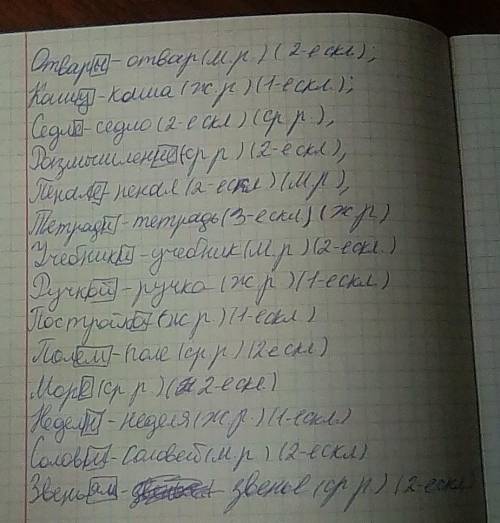 Отвары - отвар (м.р.) (2-е скл);
Каши - каша (ж.р) (1-е скл);
Седле - седло (2-е скл) (ср р.),
Размышление (ср р) (2-е скл),
Пенале - пенал (2-е скл) (м.р),
Тетради - тетрадь (3-е скл) (ж р)
Учебники - учебник (м.р) (2-е скл.)
Ручкой - ручка (ж.р) (1-е скл)
Постройка (ж р) (1-е скл.)
Полем - поле (ср р) (2 е скл)
Море (ср р) (2-е скл)
Недели - неделя (ж р) (1-е скл)
Соловьи - соловей (м.р) (2-е скл)
Звеньям - звенье (ср р) (2-е скл